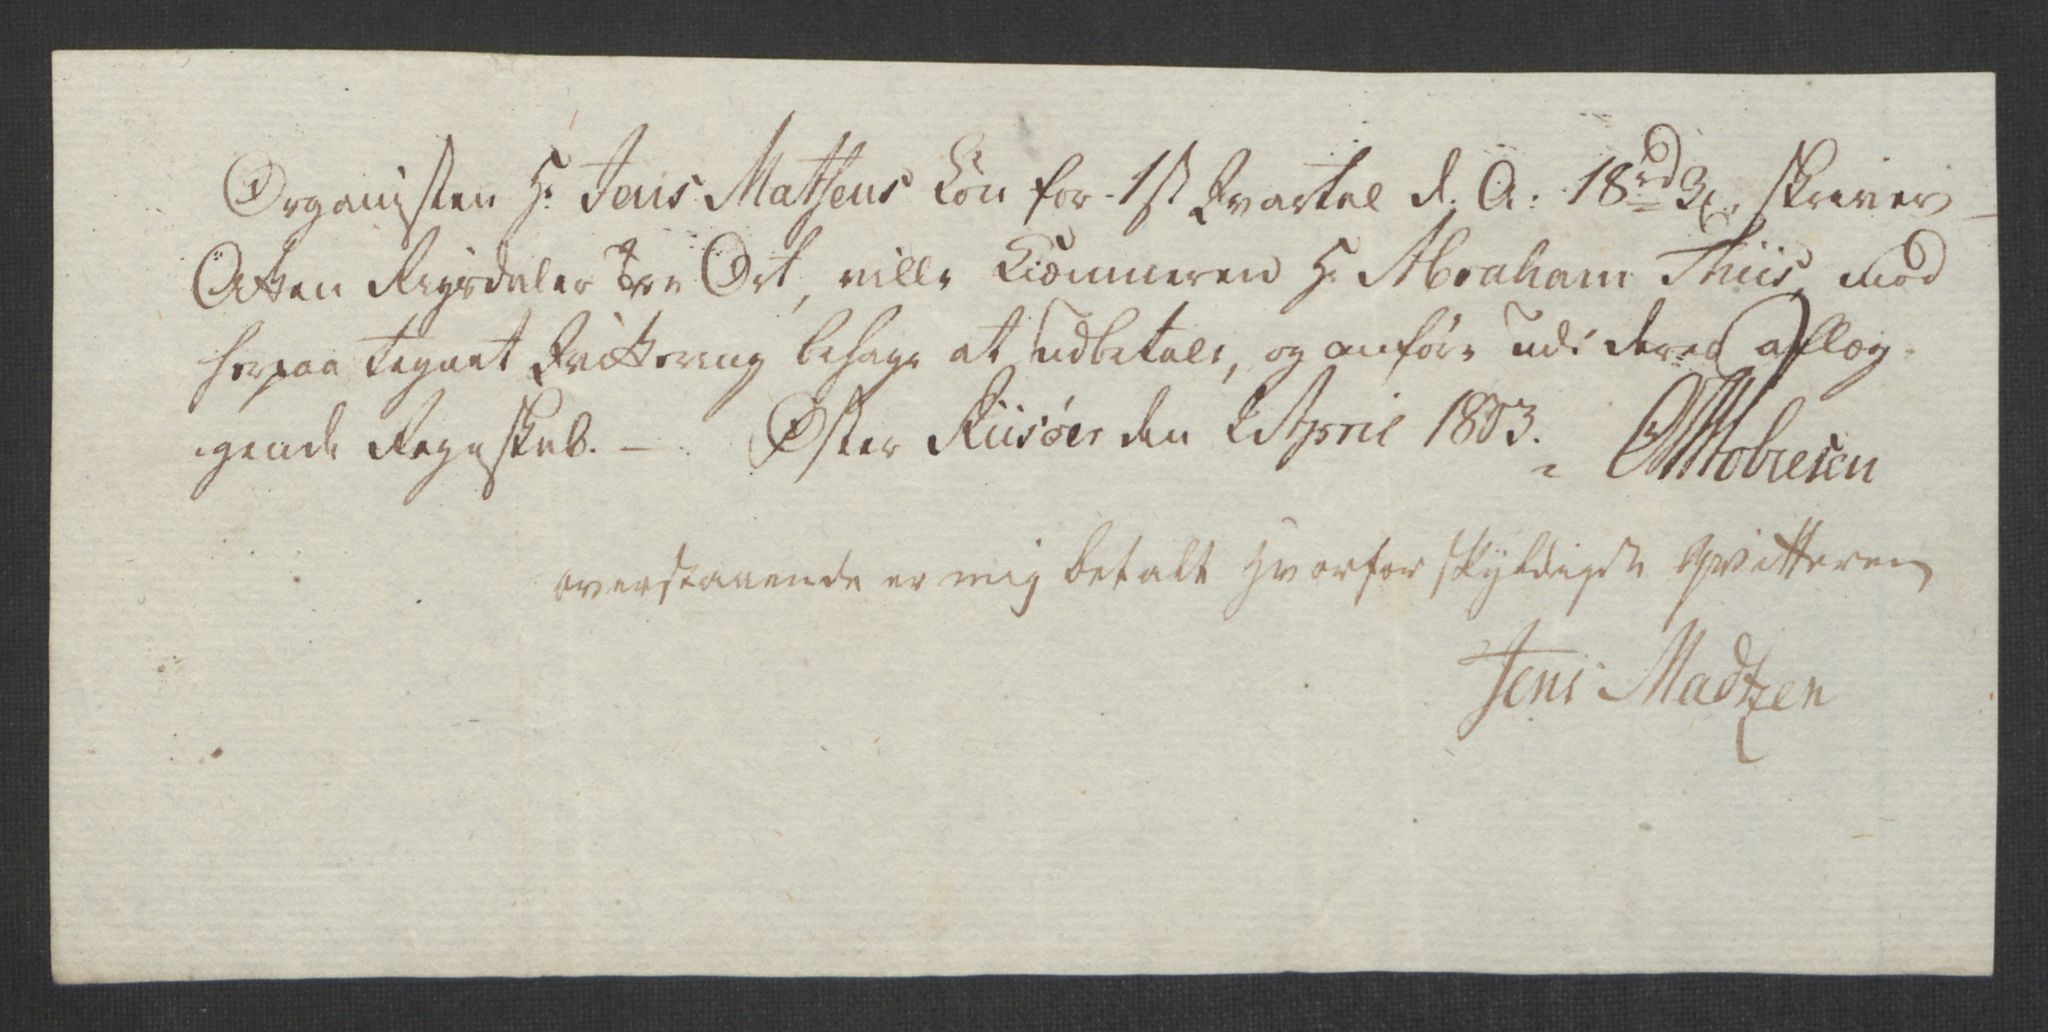 Organisten Hr. Jens Matsens Løn for 1ste Qvartal d. A: 18rd 3 skriver
Atten Rigsdaler tre Ort, ville Kiæmneren Hr. Abraham Thiis, mod
herpaa tegnet Qvittering behage at udbetale, og anføre udi deres aflæg-
gende Regnskab. — Øster Riisøer den 2 April 1803.
overstaaende er mig betalt hvorfor skyldigst qvitteren
Jens Madtzen